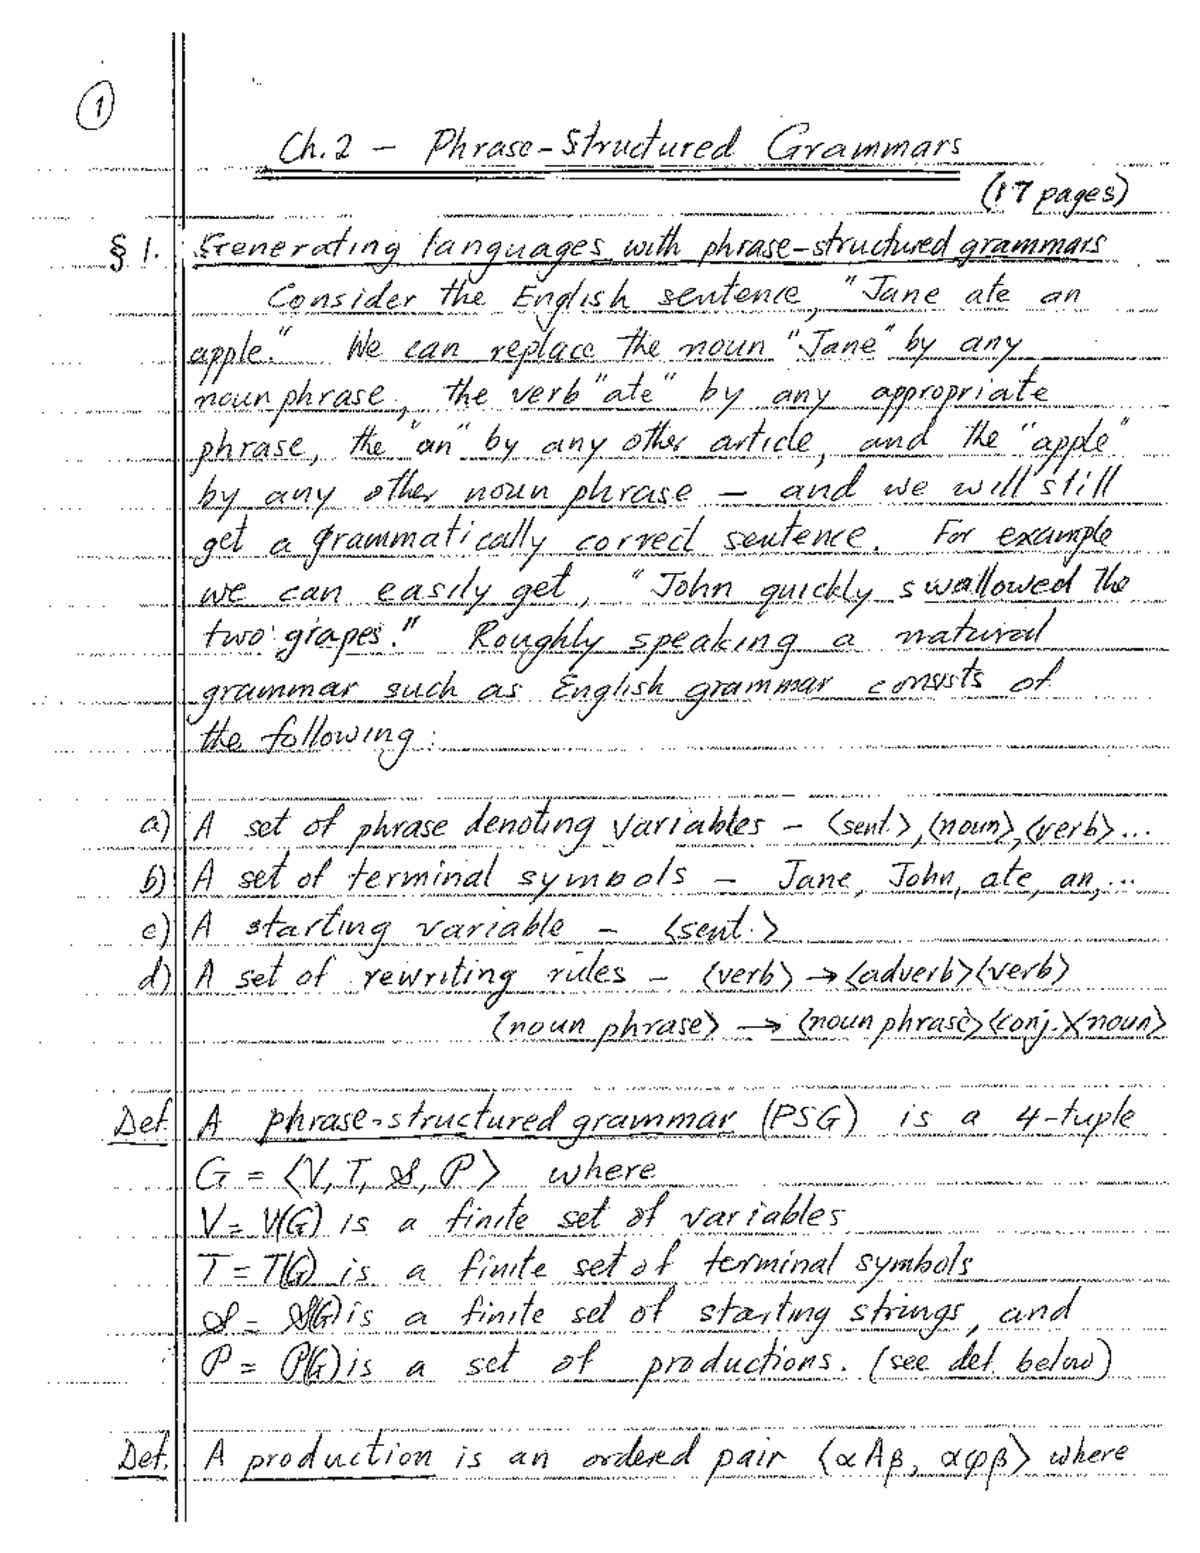 ①
Ch.2 – Phrase-Structured Grammars
(17 pages)
§ 1. Generating languages with phrase-structured grammars
Consider the English sentence, "Jane ate an
apple." We can replace the noun "Jane" by any
noun phrase, the verb "ate" by any appropriate
phrase, the "an" by any other article, and the "apple"
by any other noun phrase – and we will still
get a grammatically correct sentence. For example
we can easily get, "John quickly swallowed the
two grapes." Roughly speaking a natural
grammar such as English grammar consists of
the following:
a) A set of phrase denoting variables – ⟨sent.⟩, ⟨noun⟩, ⟨verb⟩...
b) A set of terminal symbols – Jane, John, ate, an, ...
c) A starting variable – ⟨sent.⟩
d) A set of rewriting rules – ⟨verb⟩ → ⟨adverb⟩⟨verb⟩
⟨noun phrase⟩ → ⟨noun phrase⟩⟨conj.⟩⟨noun⟩
Def. A phrase-structured grammar (PSG) is a 4-tuple
G = ⟨V, T, 𝒮, 𝒫⟩ where
V = V(G) is a finite set of variables
T = T(G) is a finite set of terminal symbols
𝒮 = 𝒮(G) is a finite set of starting strings, and
𝒫 = 𝒫(G) is a set of productions. (see def. below)
Def. A production is an ordered pair ⟨αAβ, αφβ⟩ where